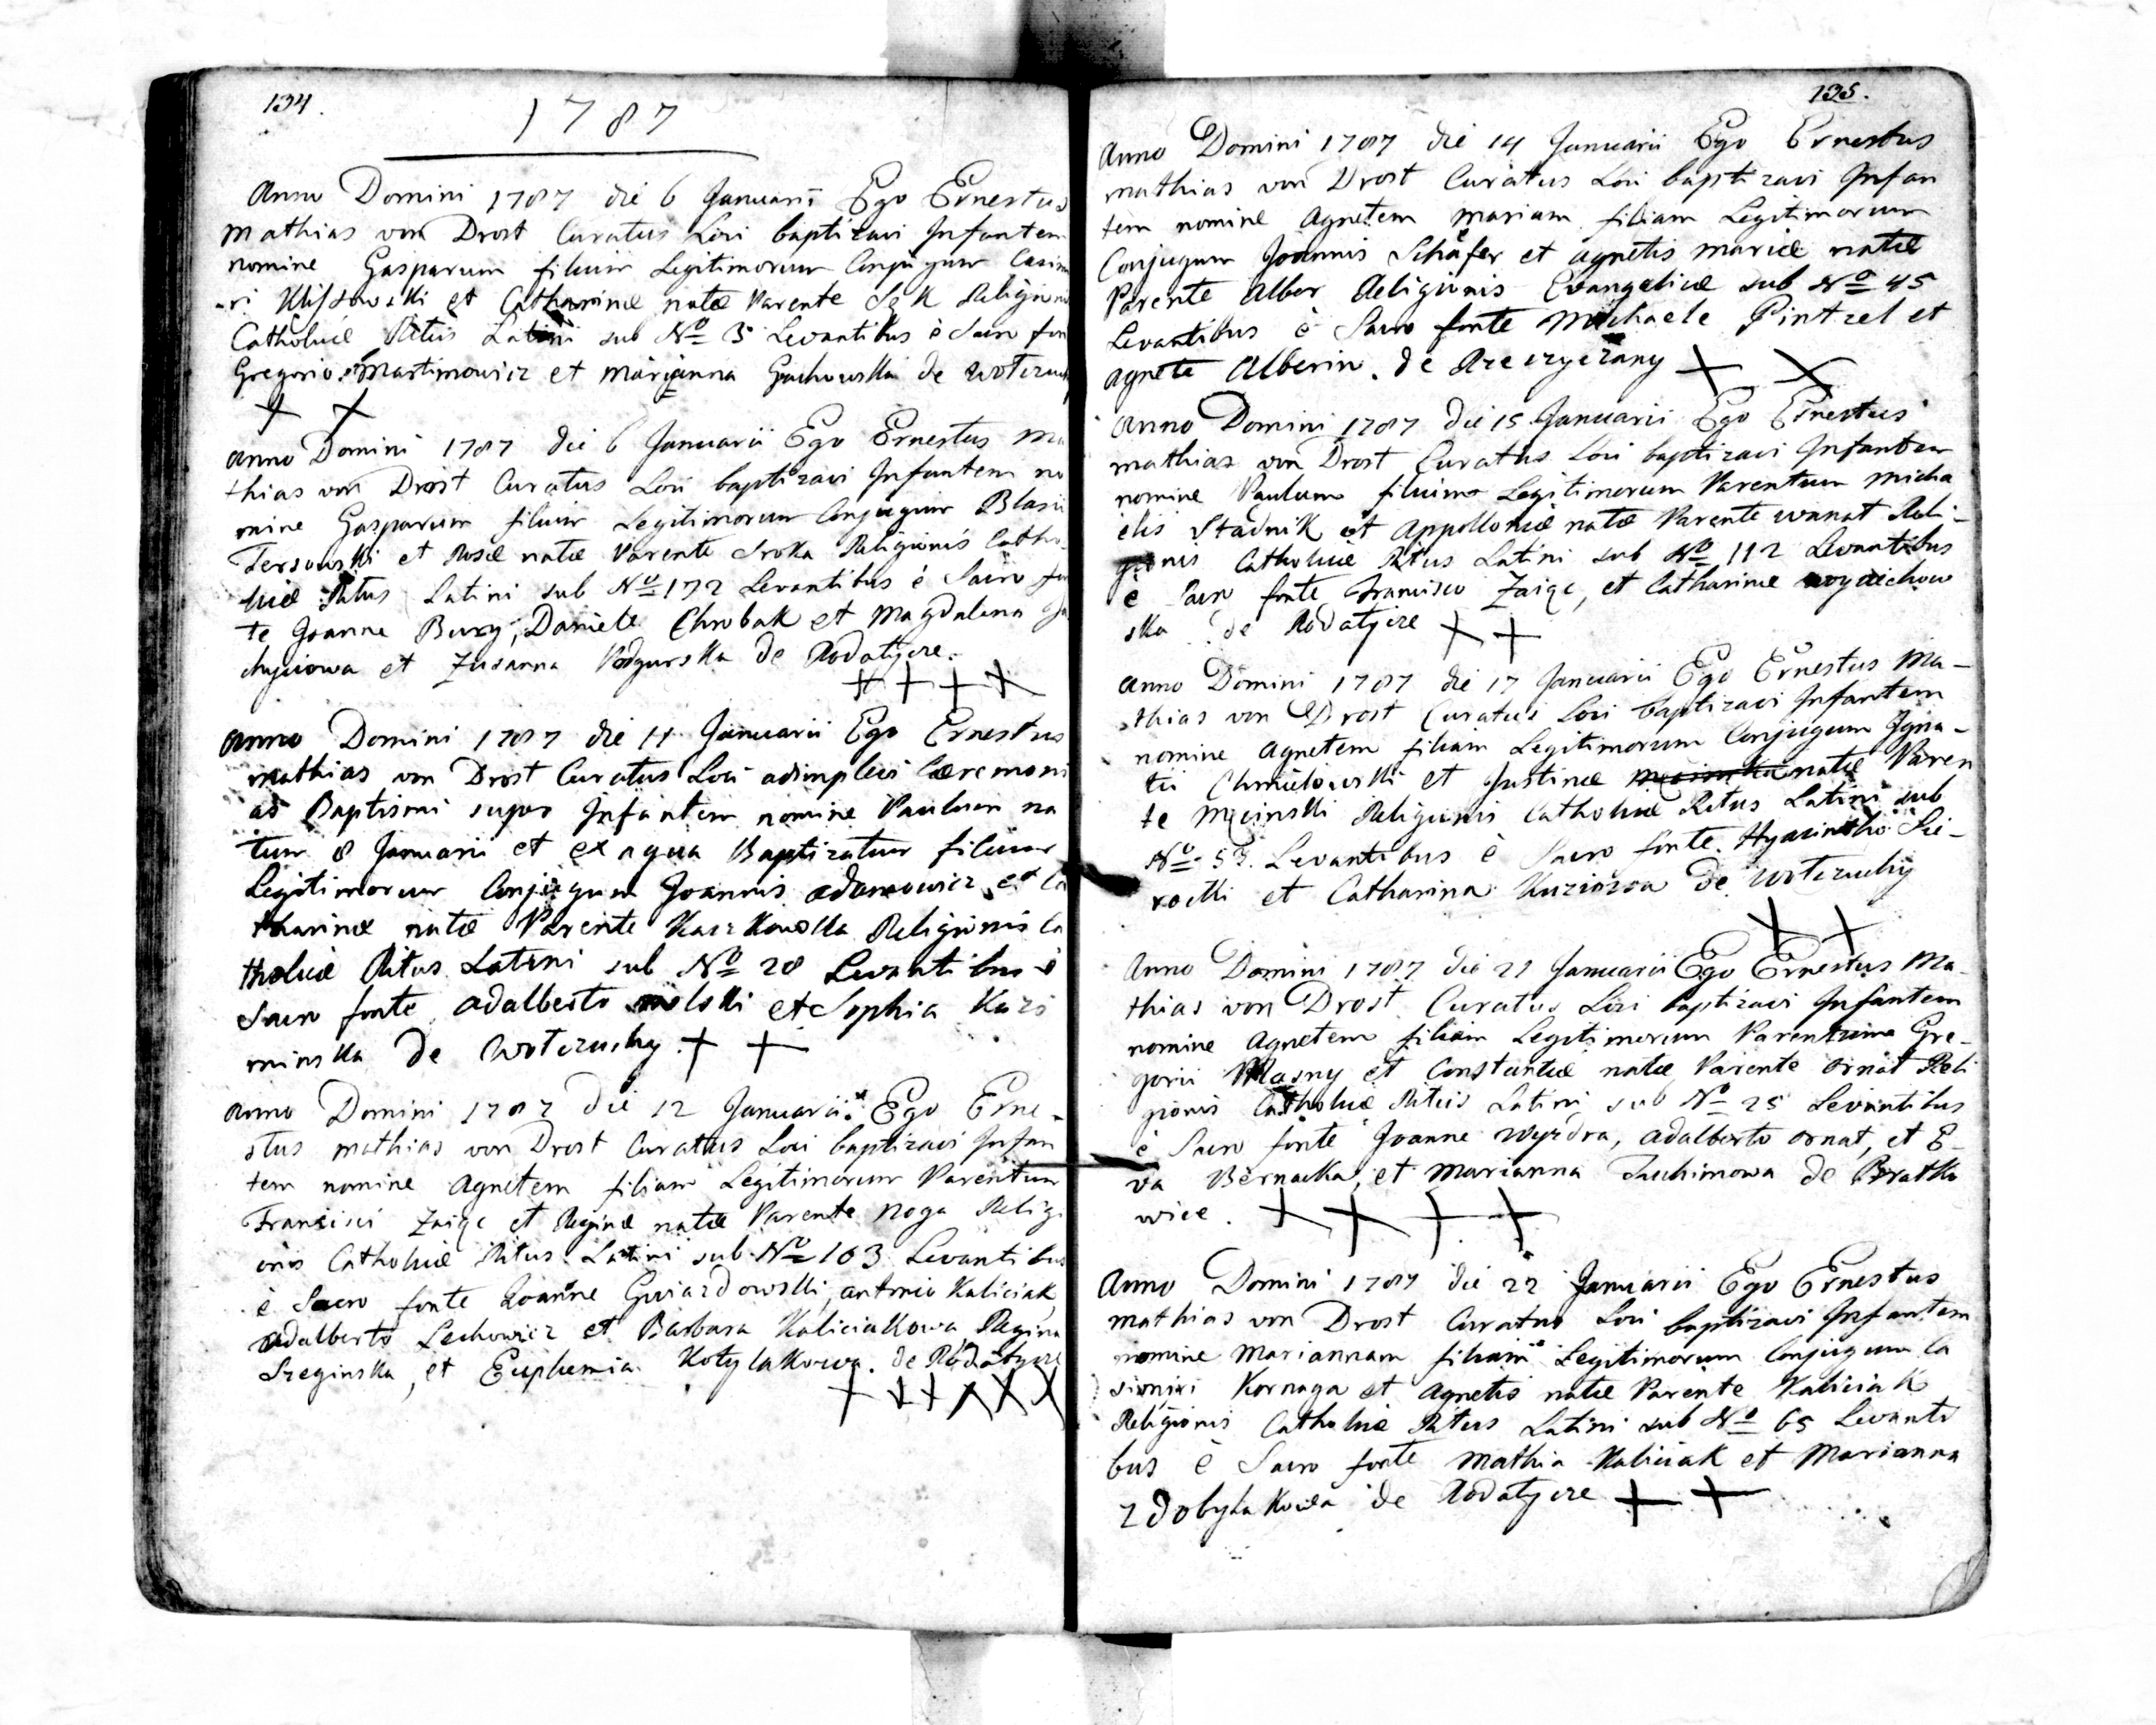 134.
1787
Anno Domini 1787 die 6 Januarii Ego Ernestus
Mathias von Drost Curatus Loci baptizavi Infantem
nomine Gasparum filium Legitimorum Conjugum Casim
ri et Catharinæ natæ Parente Sęk Religionis
Catholicæ Ritus Latini sub No 3 Levantibus è Sacro fon
Gregorio Martinowicz et Marianna Gachowska de
Anno Domini 1787 die 6 Januarii Ego Ernestus Ma
thias von Drost Curatus Loci baptizavi Infantem no
mine Gasparum filium Legitimorum Conjugum Blasii
Tersowski et Rosæ natæ Parente Sroka Religionis Catho-
licæ Ritus Latini sub No 172 Levantibus è Sacro fon
te Joanne Bury, Daniele Chrobak et Magdalena
et Zusanna Podgurska de Rodatyce.
Anno Domini 1787 die 11 Januarii Ego Ernestus
Mathias von Drost Curatus Loci adimplevi Cæremoni
as Baptismi super Infantem nomine Paulum na
tum 8 Januarii et ex aqua Baptizatum filium
Legitimorum Conjugum Joannis Adamowicz et Ca
tharinæ natæ Parente Religionis Ca
tholicæ Ritus Latini sub No 28 Levantibus è
Sacro fonte Adalberto Wolski et Sophia Kazi
minska de Wotczuchy
Anno Domini 1787 die 12 Januarii Ego Erne-
stus Mathias von Drost Curatus Loci baptizavi Infan
tem nomine Agnetem filiam Legitimorum Parentum
Francisci Zaięc et Reginæ natæ Parente Noga Religi
onis Catholicæ Ritus Latini sub No 163 Levantibus
è Sacro fonte Joanne Gwiazdowski, Antonio Kaliciak
Adalberto Lechowicz et Barbara Kaliciakowa Regina
Sreginska, et Euphemia Kotylakowa. de Rodatyce
135.
Anno Domini 1787 die 14 Januarii Ego Ernestus
Mathias von Drost Curatus Loci baptizavi Infan
tem nomine Agnetem Mariam filiam Legitimorum
Conjugum Joannis Schäfer et Agnetis Mariæ natæ
Parente Alber Religionis Evangelicæ sub No 45
Levantibus è Sacro fonte Michaele Pintzel et
Agnete Alberin. de
Anno Domini 1787 Die 15 Januarii Ego Ernestus
Mathias von Drost Curatus Loci baptizavi Infantem
nomine Paulum filium Legitimorum Parentum Micha
elis Stadnik et Appolloniæ natæ Parente Wanat Reli-
gionis Catholicæ Ritus Latini sub No 112 Levantibus
è Sacro fonte Francisco Zaięc, et Catharinæ Woyciechow
ska de Rodatyce
Anno Domini 1787 die 17 Januarii Ego Ernestus Ma-
thias von Drost Curatus Loci baptizavi Infantem
nomine Agnetem filiam Legitimorum Conjugum Igna-
tii Chmielowski et Justinæ natæ Paren
te Mcinski Religionis Catholicæ Ritus Latini sub
No 53. Levantibus è Sacro fonte Hyacintho Sie-
rocki et Catharina de Wotczuchy
Anno Domini 1787 die 21 Januarii Ego Ernestus Ma-
thias von Drost Curatus Loci baptizavi Infantem
nomine Agnetem filiam Legitimorum Parentum Gre-
gorii Masny et Constantiæ natæ Parente Ornat Reli
gionis Catholicæ Ritus Latini sub No 25 Levantibus
è Sacro fonte Joanne Wyzdra, Adalberto Ornat, et E-
va Bernacka, et Marianna Juchimowa de Bratko
wice.
Anno Domini 1787 die 22 Januarii Ego Ernestus
Mathias von Drost Curatus Loci baptizavi Infantem
nomine Mariannam filiam Legitimorum Conjugum Ca
simiri Kornaga et Agnetis natæ Parente Kaliciak
Religionis Catholicæ Ritus Latini sub No 65 Levanti
bus è Sacro fonte Mathia Kaliciak et Marianna
Zdobylakowa de Rodatyce